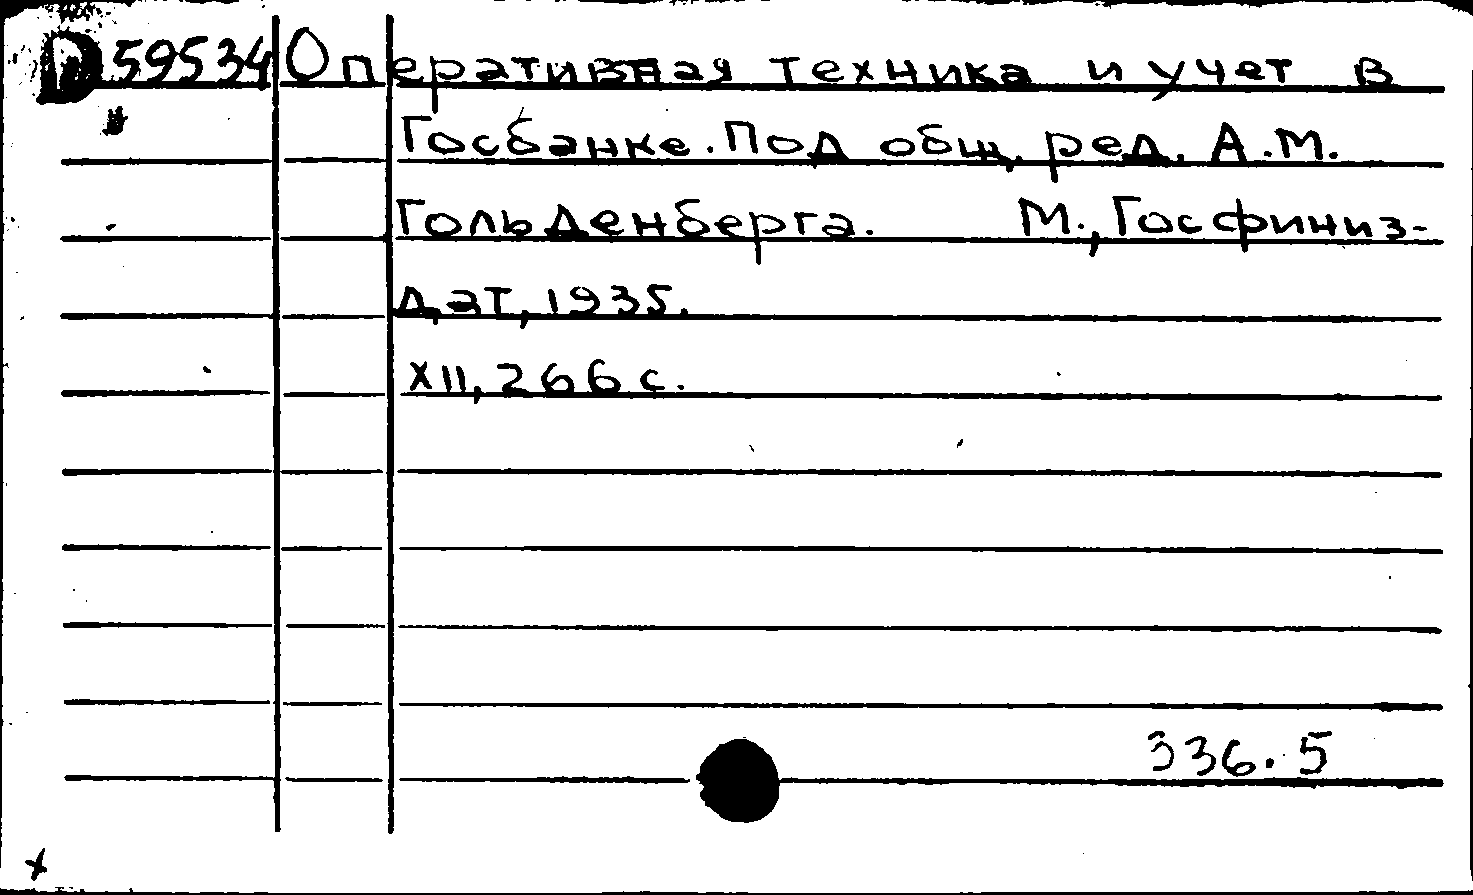 D 59534 Оперативная техника и учет в
Госбанке. Под общ. ред. А.М.
Гольденберга. М., Госфиниз-
дат, 1935.
XII, 266 с.
336.5